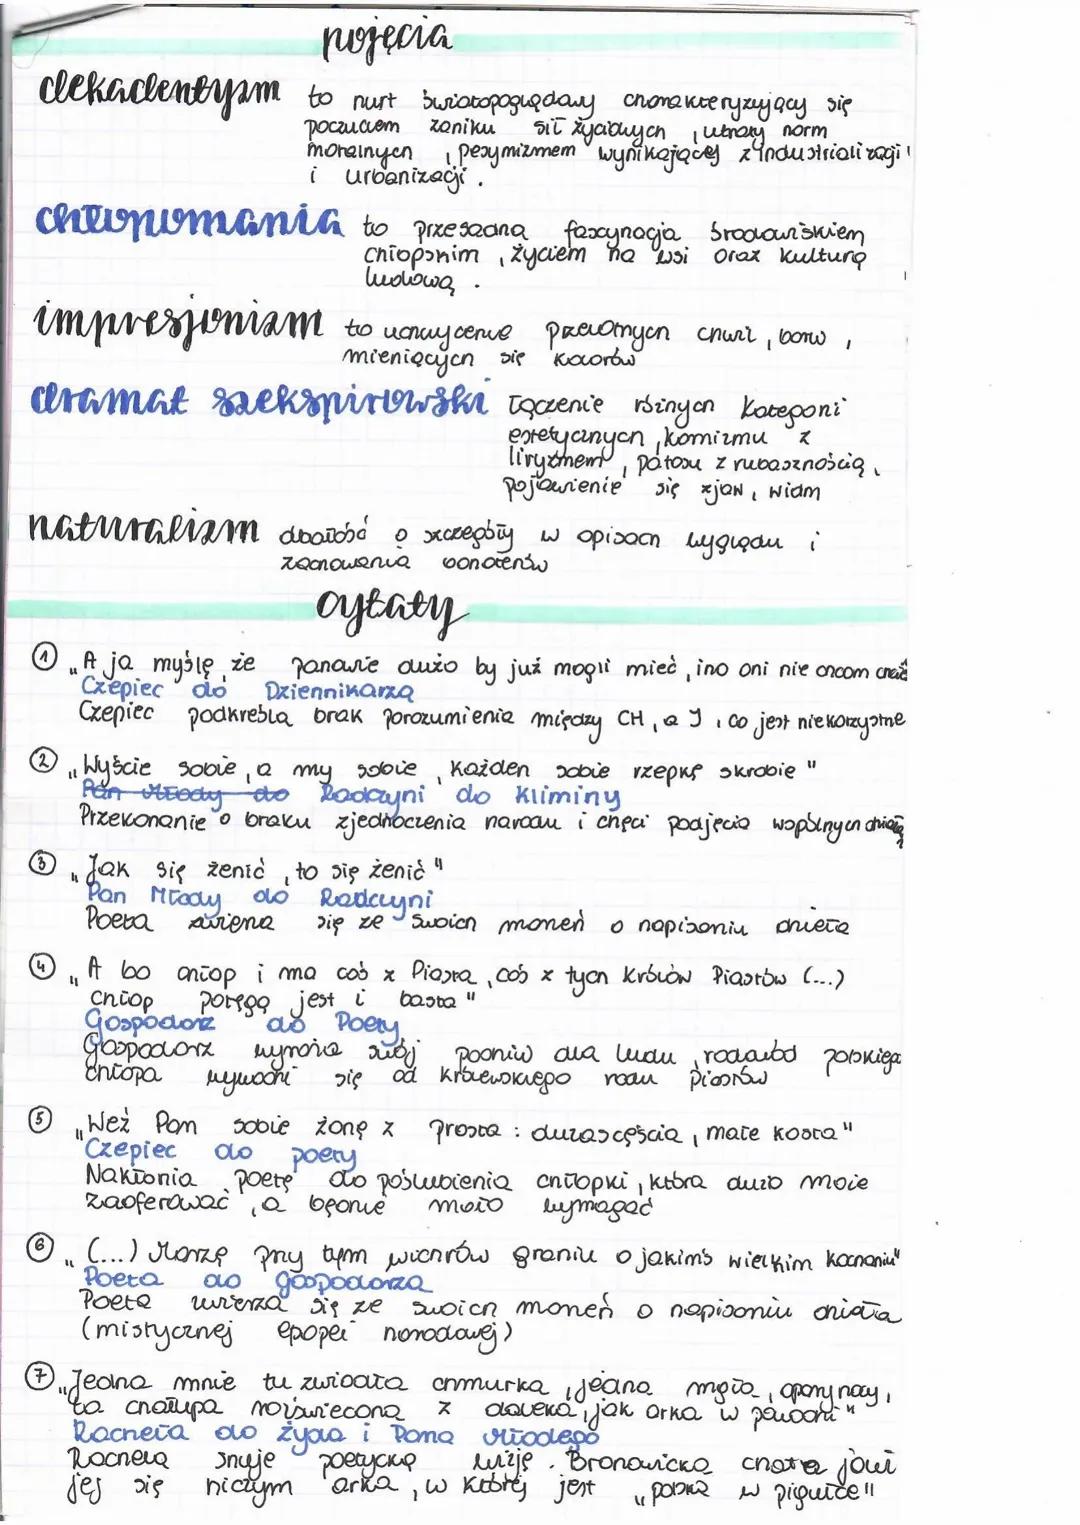 pojęcia
dekadentyzm to nurt światopoglądowy charakteryzujący się
poczuciem zaniku sił życiowych, utraty norm
moralnych, pesymizmem wynikającej z industrializacji
i urbanizacji.
chłopomania to przesadna fascynacja środowiskiem
chłopskim, życiem na wsi oraz kulturą
ludową.
impresjonizm to uchwycenie przelotnych chwil, barw,
mieniących się kolorów
dramat szekspirowski łączenie różnych kategorii
estetycznych, komizmu z
liryzmem, patosu z rubasznością,
pojawienie się zjaw, widm
naturalizm dbałość o szczegóły w opisach wyglądu i
zachowania bohaterów
cytaty
① "A ja myślę, że panowie dużo by już mogli mieć, ino oni nie chcom chcieć
Czepiec do Dziennikarza
Czepiec podkreśla brak porozumienia między CH, a I, co jest niekorzystne
② "Wyście sobie, a my sobie, Każden sobie rzepkę skrobie"
Pan Młody do Radczyni do Kliminy
Przekonanie o braku zjednoczenia narodu i chęci podjęcia wspólnych działań
③ "Jak się żenić, to się żenić"
Pan Młody do Radczyni
Poeta zwierza się ze swoich marzeń o napisaniu dzieła
④ "A bo chłop i ma coś z Piasta, coś z tych królów Piastów (...)
chłop potęgą jest i basta"
Gospodarz do Poety
Gospodarz wyraża swój podziw dla ludu, rodowód polskiego
chłopa wywodzi się od królewskiego rodu piastów
⑤ "Weź Pan sobie żonę z prosta: duza scęścia, małe kosta"
Czepiec do poety
Nakłonia poetę do poślubienia chłopki, która dużo może
zaoferować, a będzie mało wymagać
⑥ "(...) Marzę przy tym wichrów graniu o jakimś wielkim kochaniu"
Poeta do gospodarza
Poeta zwierza się ze swoich marzeń o napisaniu dzieła
(mistycznej epopei narodowej)
⑦ "Jedna mnie tu zwiodła chmurka, jedna mgła, opary nocy,
ta chałupa rozświecona z daleka, jak arka w powodzi"
Rachela do Żyda i Pana Młodego
Rachela snuje poetycką wizję. Bronowicka chata jawi
jej się niczym arka, w której jest "polska w pigułce"